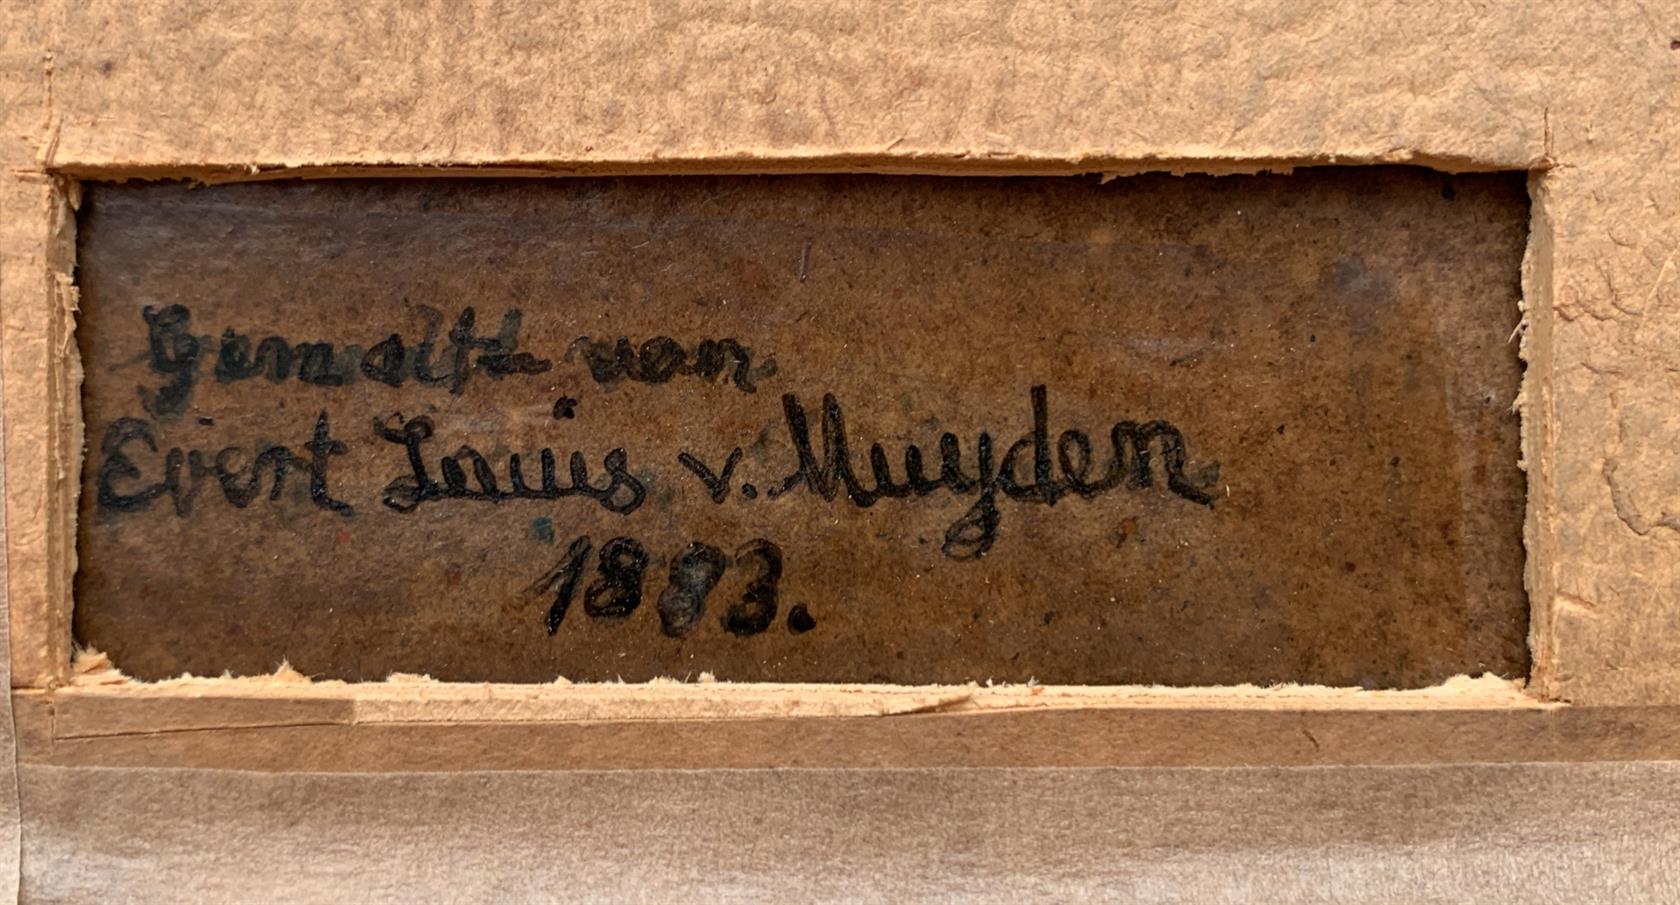 Gemalt von
Evert Louis v. Muyden
1883.